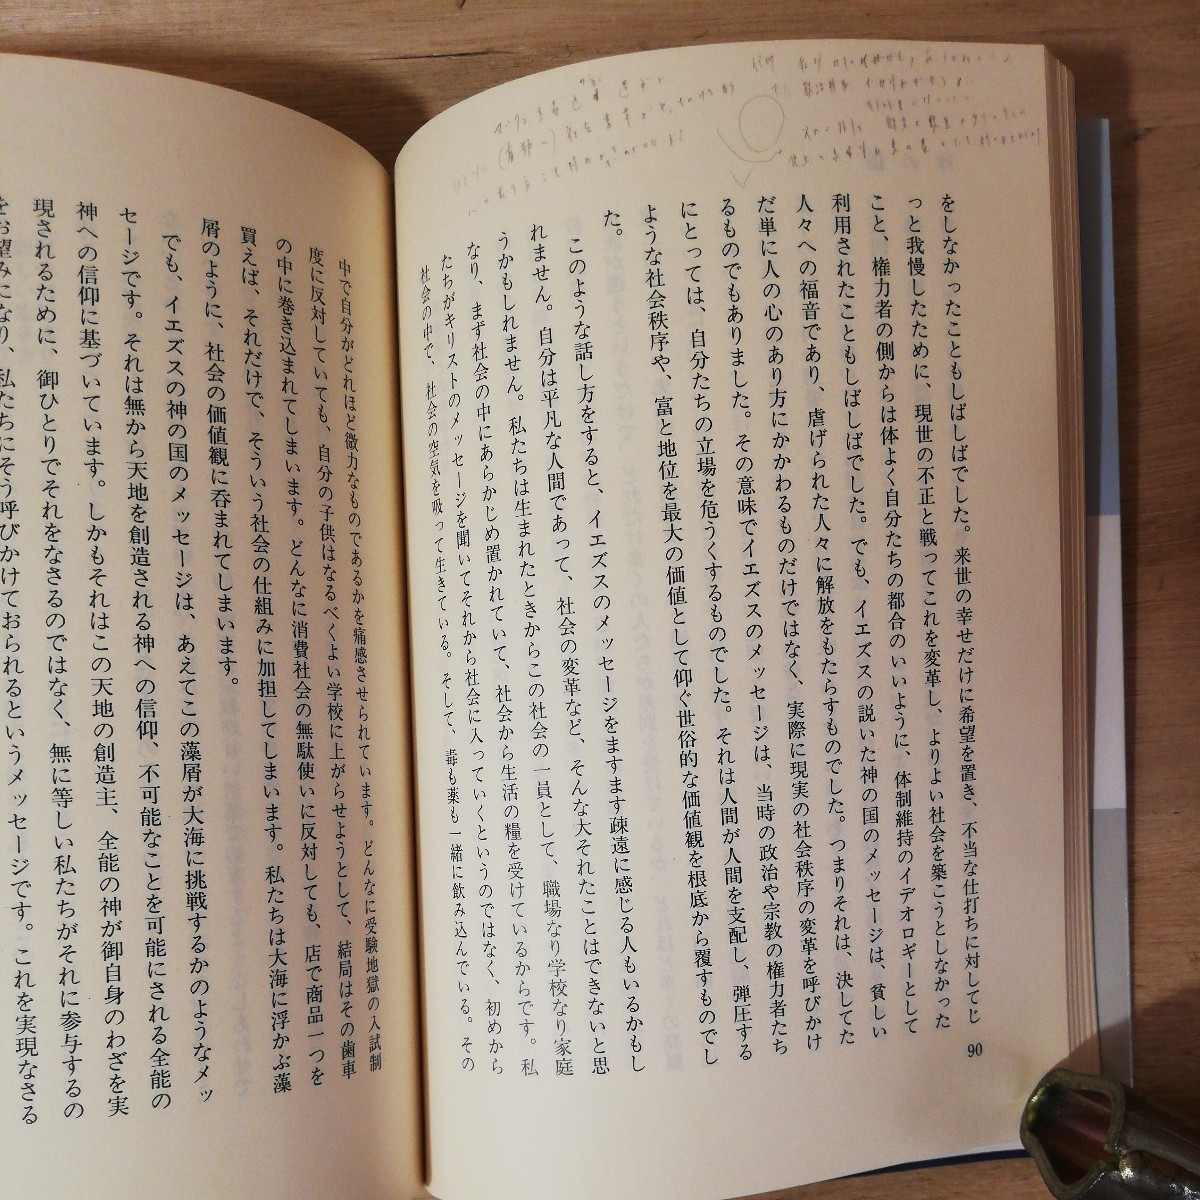 をしなかったこともしばしばでした。来世の幸せだけに希望を置き、不当な仕打ちに対してじ
っと我慢したために、現世の不正と戦ってこれを変革し、よりよい社会を築こうとしなかった
こと、権力者の側からは体よく自分たちの都合のいいように、体制維持のイデオロギーとして
利用されたこともしばしばでした。でも、イエズスの説いた神の国のメッセージは、貧しい
人々への福音であり、虐げられた人々に解放をもたらすものでした。つまりそれは、決してた
だ単に人の心のあり方にかかわるものだけではなく、実際に現実の社会秩序の変革を呼びかけ
るものでもありました。その意味でイエズスのメッセージは、当時の政治や宗教の権力者たち
にとっては、自分たちの立場を危うくするものでした。それは人間が人間を支配し、弾圧する
ような社会秩序や、富と地位を最大の価値として仰ぐ世俗的な価値観を根底から覆すものでし
た。
このような話し方をすると、イエズスのメッセージをますます疎遠に感じる人もいるかもし
れません。自分は平凡な人間であって、社会の変革など、そんな大それたことはできないと思
うかもしれません。私たちは生まれたときからこの社会の一員として、職場なり学校なり家庭
なり、まず社会の中にあらかじめ置かれていて、社会から生活の糧を受けているからです。私
たちがキリストのメッセージを聞いてそれから社会に入っていくというのではなく、初めから
社会の中で、社会の空気を吸って生きている。そして、毒も薬も一緒に飲み込んでいる。その
90
中で自分がどれほど微力なものであるかを痛感させられています。どんなに受験地獄の入試制
度に反対していても、自分の子供はなるべくよい学校に上がらせようとして、結局はその歯車
の中に巻き込まれてしまいます。どんなに消費社会の無駄使いに反対しても、店で商品一つを
買えば、それだけで、そういう社会の仕組みに加担してしまいます。私たちは大海に浮かぶ藻
屑のように、社会の価値観に呑まれてしまいます。
でも、イエズスの神の国のメッセージは、あえてこの藻屑が大海に挑戦するかのようなメッ
セージです。それは無から天地を創造される神への信仰、不可能なことを可能にされる全能の
神への信仰に基づいています。しかもそれはこの天地の創造主、全能の神が御自身のわざを実
現されるために、御ひとりでそれをなさるのではなく、無に等しい私たちがそれに参与するの
をお望みになり、私たちにそう呼びかけておられるというメッセージです。これを実現なさる